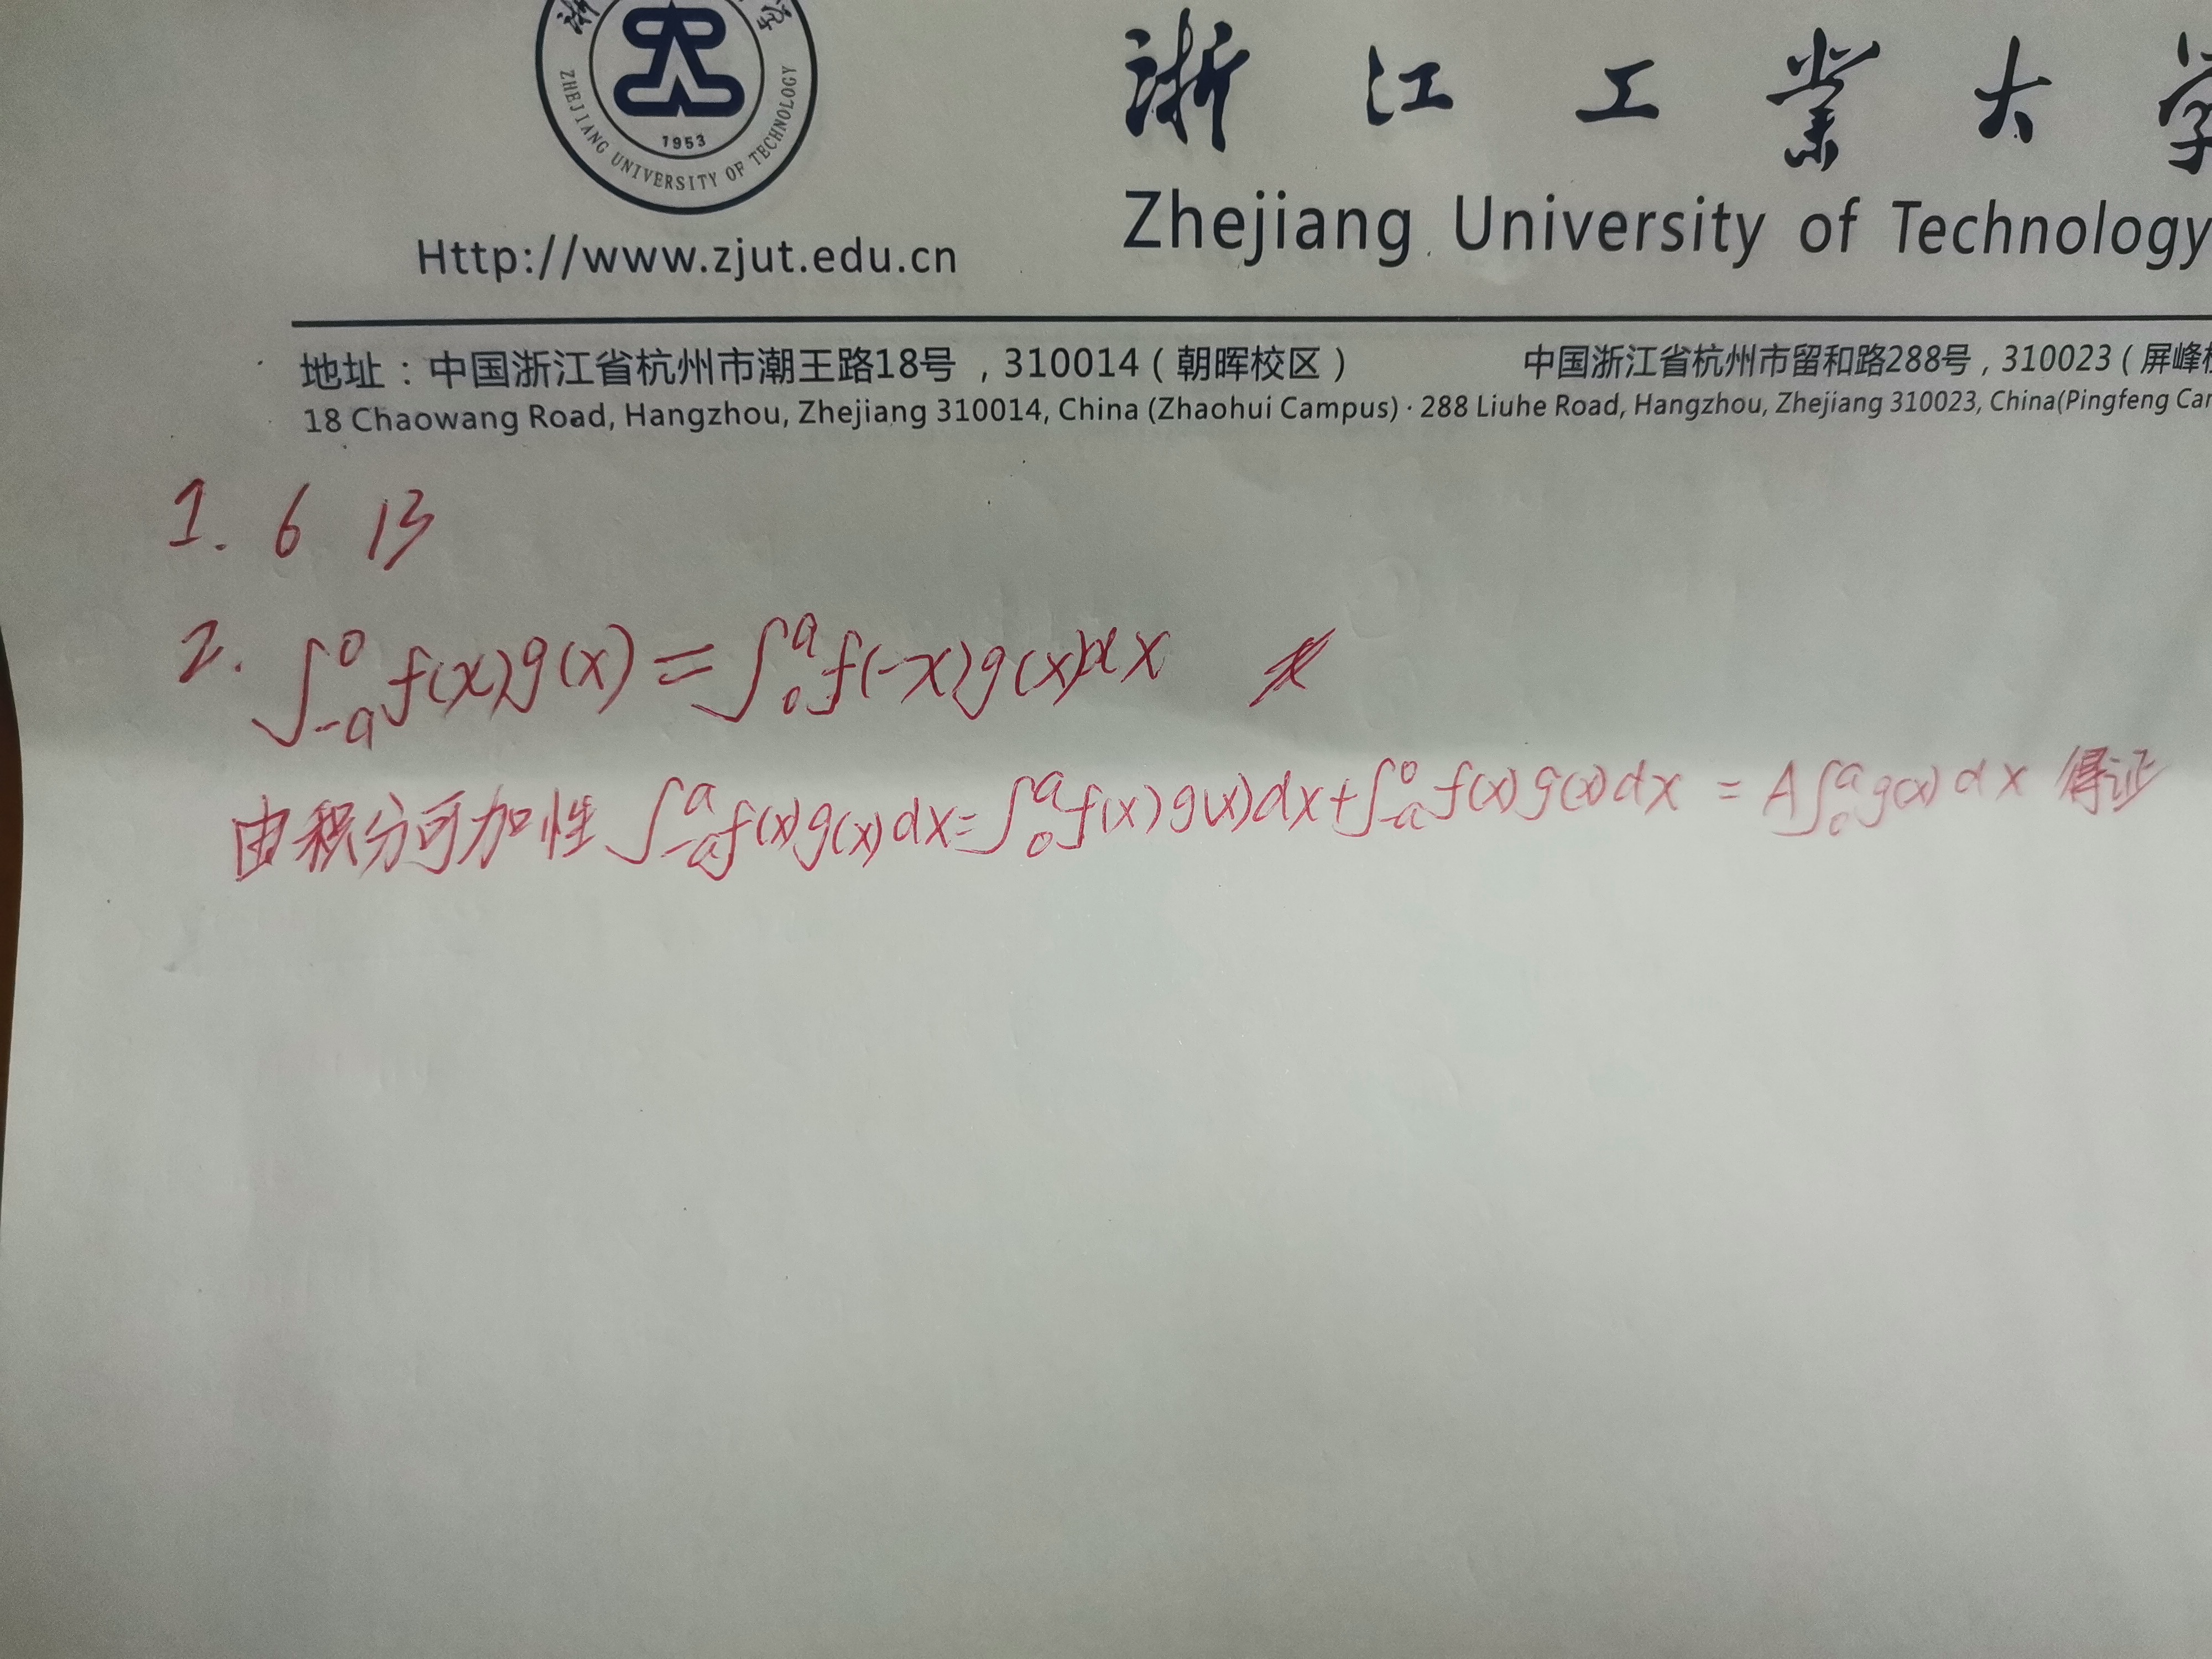 浙
1953
ZHEJIANG UNIVERSITY OF TECHNOLOGY
Http://www.zjut.edu.cn
浙江工业大学
Zhejiang University of Technology
地址：中国浙江省杭州市潮王路18号，310014（朝晖校区） 中国浙江省杭州市留和路288号，310023（屏峰
18 Chaowang Road, Hangzhou, Zhejiang 310014, China (Zhaohui Campus) · 288 Liuhe Road, Hangzhou, Zhejiang 310023, China(Pingfeng Ca
1. 6 13
2. ∫_{-a}^{0} f(x)g(x) = ∫_{0}^{a} f(-x)g(x)dx
由积分可加性 ∫_{-a}^{a} f(x)g(x)dx = ∫_{0}^{a} f(x)g(x)dx + ∫_{-a}^{0} f(x)g(x)dx = A∫_{0}^{a} g(x)dx 得证